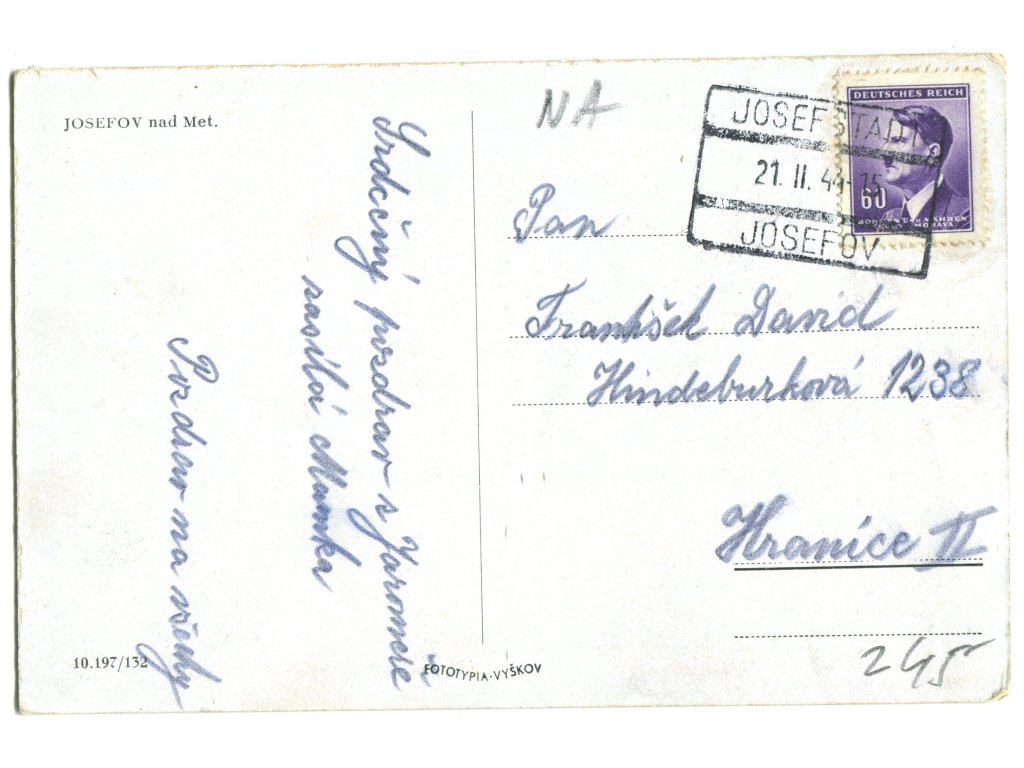 JOSEFOV nad Met.
Srdečný pozdrav z Jaroměře
zasílá Mamka
Pozdrav na všechy
10.197/132
FOTOTYPIA-VYŠKOV
NA
JOSEFSTADT
21. II. 44-15
JOSEFOV
DEUTSCHES REICH
60
BÖHMEN UND MÄHREN
MORAVA
Pan
František David
Hindeburková 1238
Hranice II
245